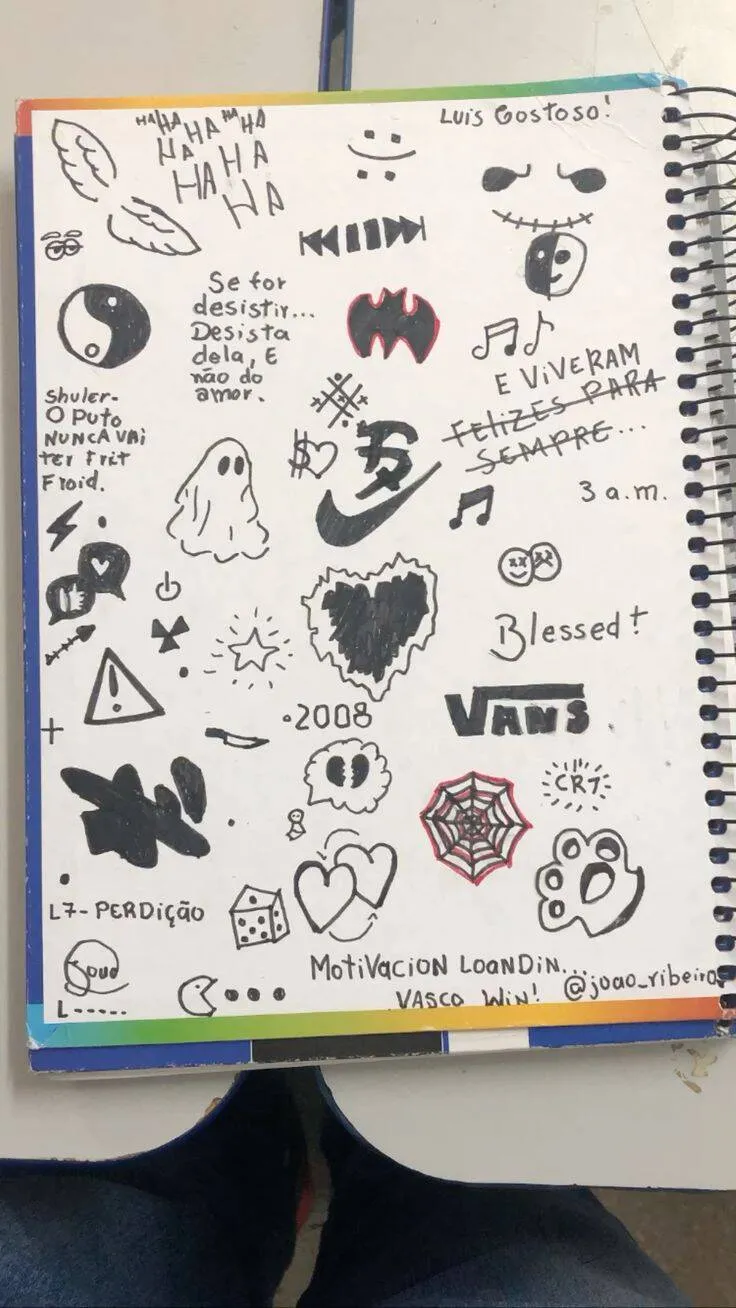 HA HA HA HA HA
HA HA
HA HA
Luis Gostoso!
Se for
desistir...
Desista
dela, E
não do
amor.
E ViVERAM
FELIZES PARA
SEMPRE...
Shuler-
O Puto
NUNCA VAi
TEr Frit
Froid.
3 a.m.
Blessed!
.2008
VANS
CR7
L7- PERDiÇÃO
L-----
MotiVacioN LOANDiN...
VASCO WiN!
@joao_ribeiro